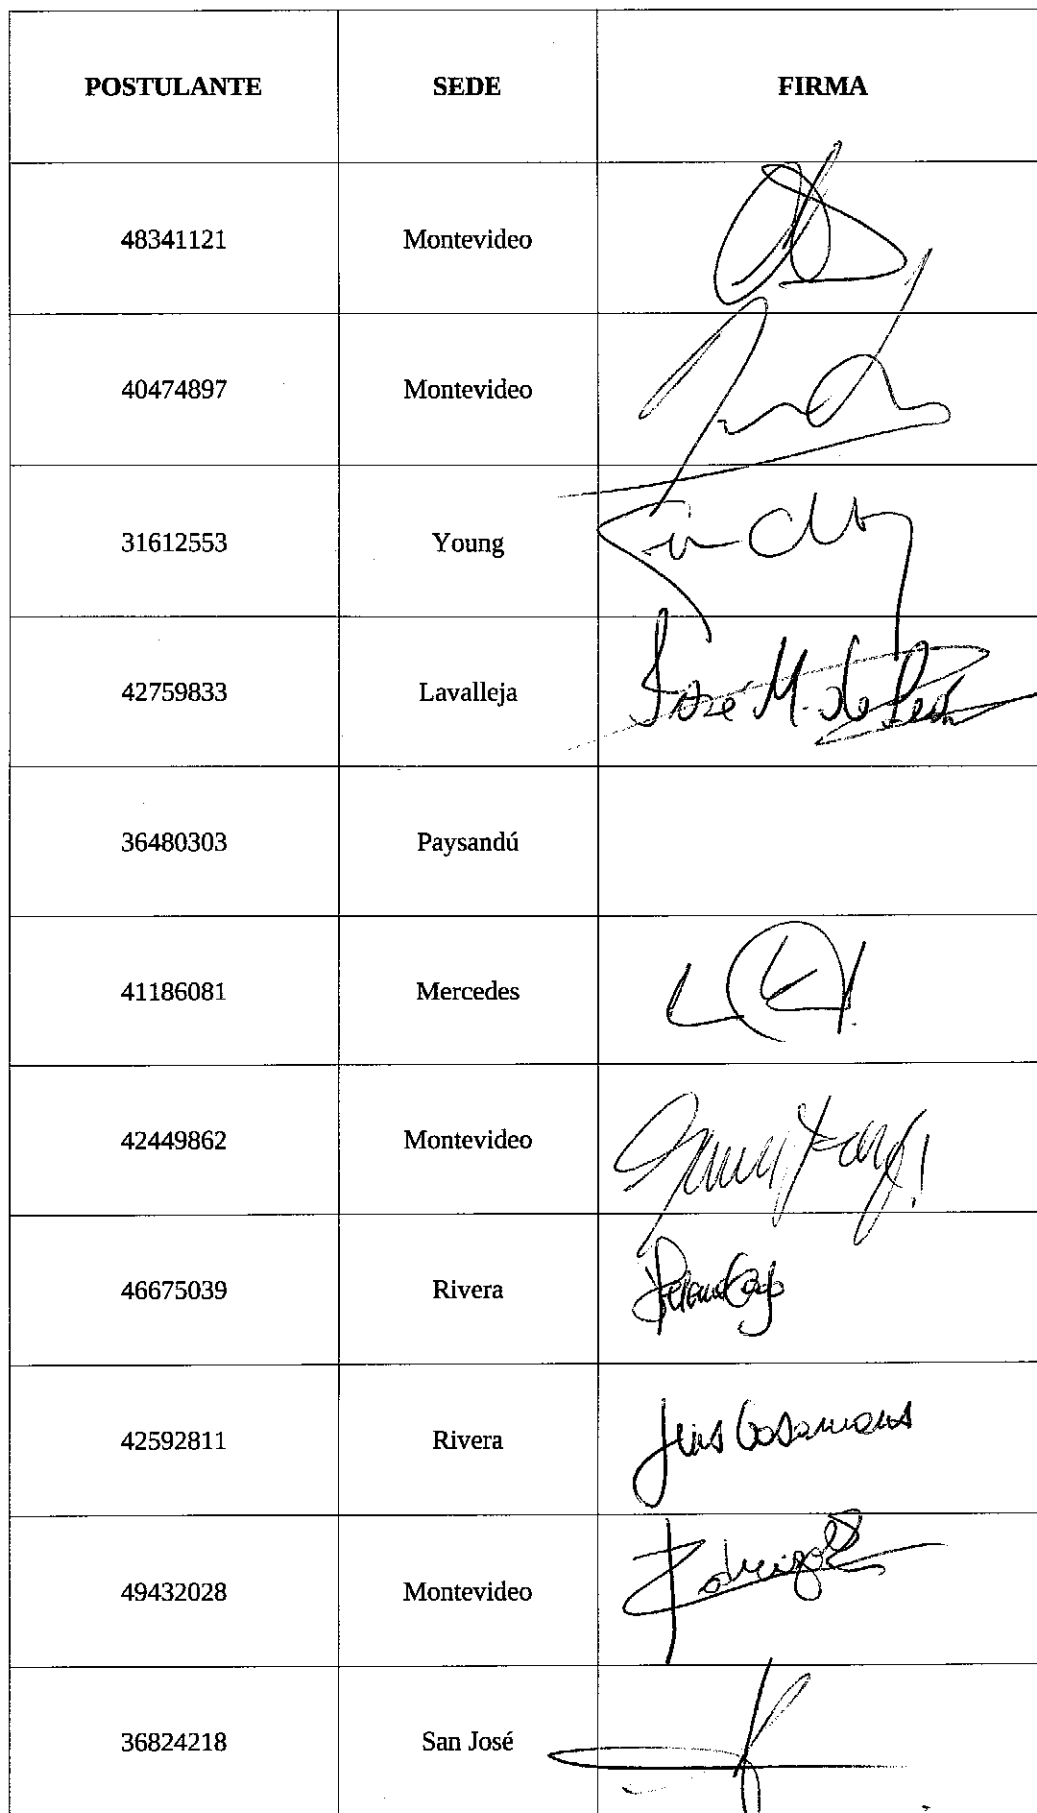 POSTULANTE SEDE FIRMA
48341121 Montevideo
40474897 Montevideo
31612553 Young
42759833 Lavalleja José M. de León
36480303 Paysandú
41186081 Mercedes
42449862 Montevideo
46675039 Rivera
42592811 Rivera Luis
49432028 Montevideo Rodrigo
36824218 San José